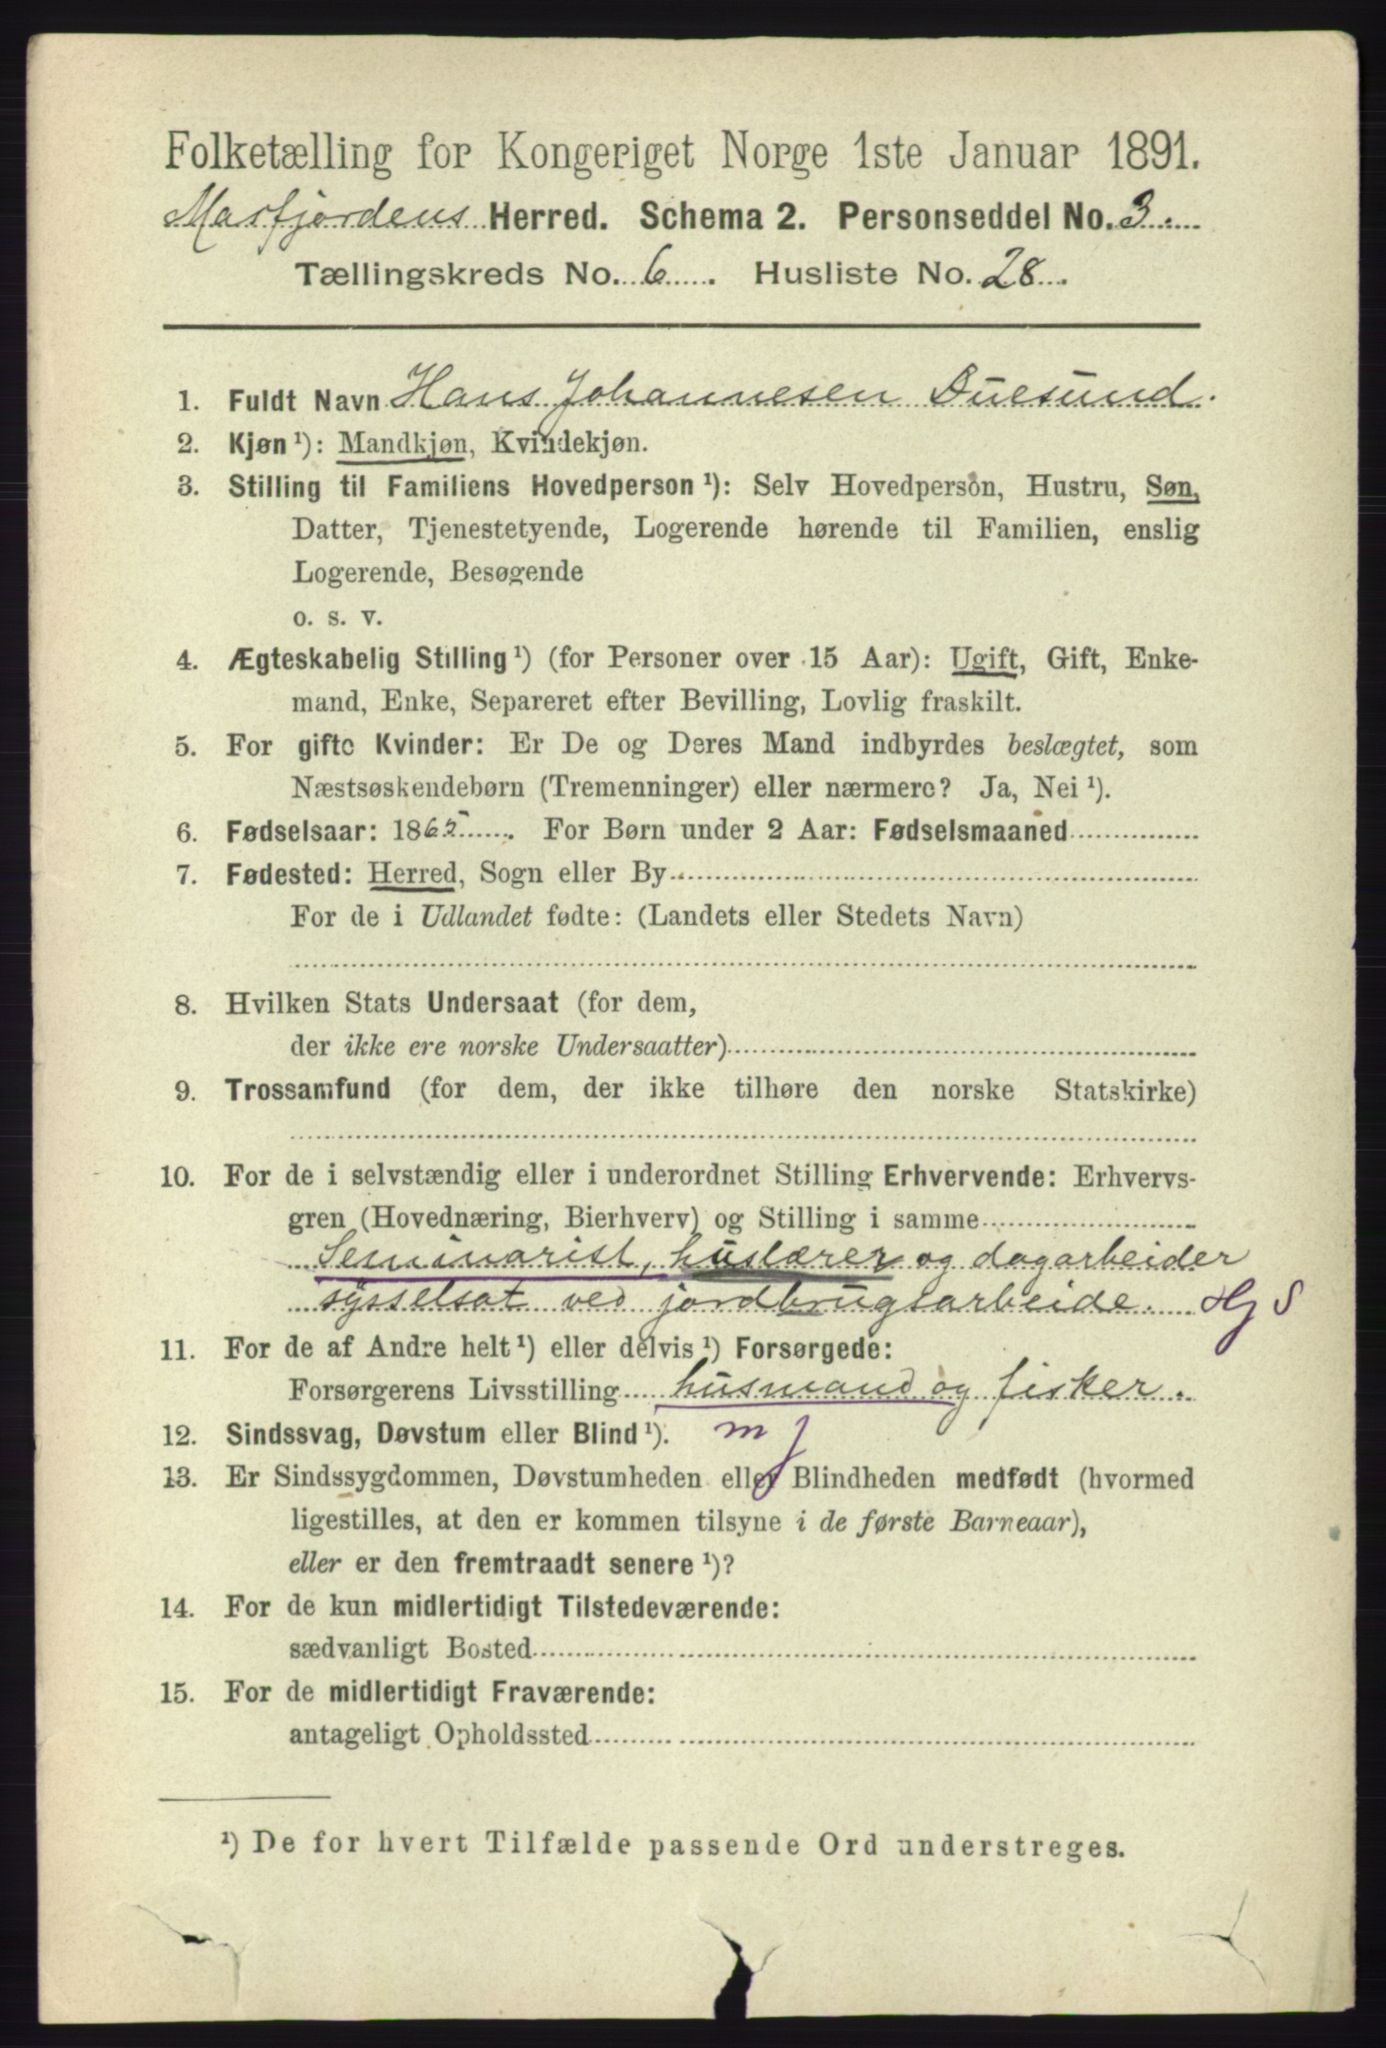 Folketælling for Kongeriget Norge 1ste Januar 1891.
Masfjordens Herred. Schema 2. Personseddel No. 3.
Tællingskreds No. 6. Husliste No. 28.
1. Fuldt Navn Hans Johannesen Duesund.
2. Kjøn ¹): Mandkjøn, Kvindekjøn.
3. Stilling til Familiens Hovedperson ¹): Selv Hovedperson, Hustru, Søn,
Datter, Tjenestetyende, Logerende hørende til Familien, enslig
Logerende, Besøgende
o. s. v.
4. Ægteskabelig Stilling ¹) (for Personer over 15 Aar): Ugift, Gift, Enke-
mand, Enke, Separeret efter Bevilling, Lovlig fraskilt.
5. For gifte Kvinder: Er De og Deres Mand indbyrdes beslægtet, som
Næstsøskendebørn (Tremenninger) eller nærmere? Ja, Nei ¹).
6. Fødselsaar: 1865. For Børn under 2 Aar: Fødselsmaaned
7. Fødested: Herred, Sogn eller By
For de i Udlandet fødte: (Landets eller Stedets Navn)
8. Hvilken Stats Undersaat (for dem,
der ikke ere norske Undersaatter)
9. Trossamfund (for dem, der ikke tilhøre den norske Statskirke)
10. For de i selvstændig eller i underordnet Stilling Erhvervende: Erhvervs-
gren (Hovednæring, Bierhverv) og Stilling i samme
Seminarist, huslærer og dagarbeider
sysselsat ved jordbrugsarbeide. Hj S
11. For de af Andre helt ¹) eller delvis ¹) Forsørgede:
Forsørgerens Livsstilling husmand og fisker.
12. Sindssvag, Døvstum eller Blind ¹). m j
13. Er Sindssygdommen, Døvstumheden eller Blindheden medfødt (hvormed
ligestilles, at den er kommen tilsyne i de første Barneaar),
eller er den fremtraadt senere ¹)?
14. For de kun midlertidigt Tilstedeværende:
sædvanligt Bosted
15. For de midlertidigt Fraværende:
antageligt Opholdssted
¹) De for hvert Tilfælde passende Ord understreges.